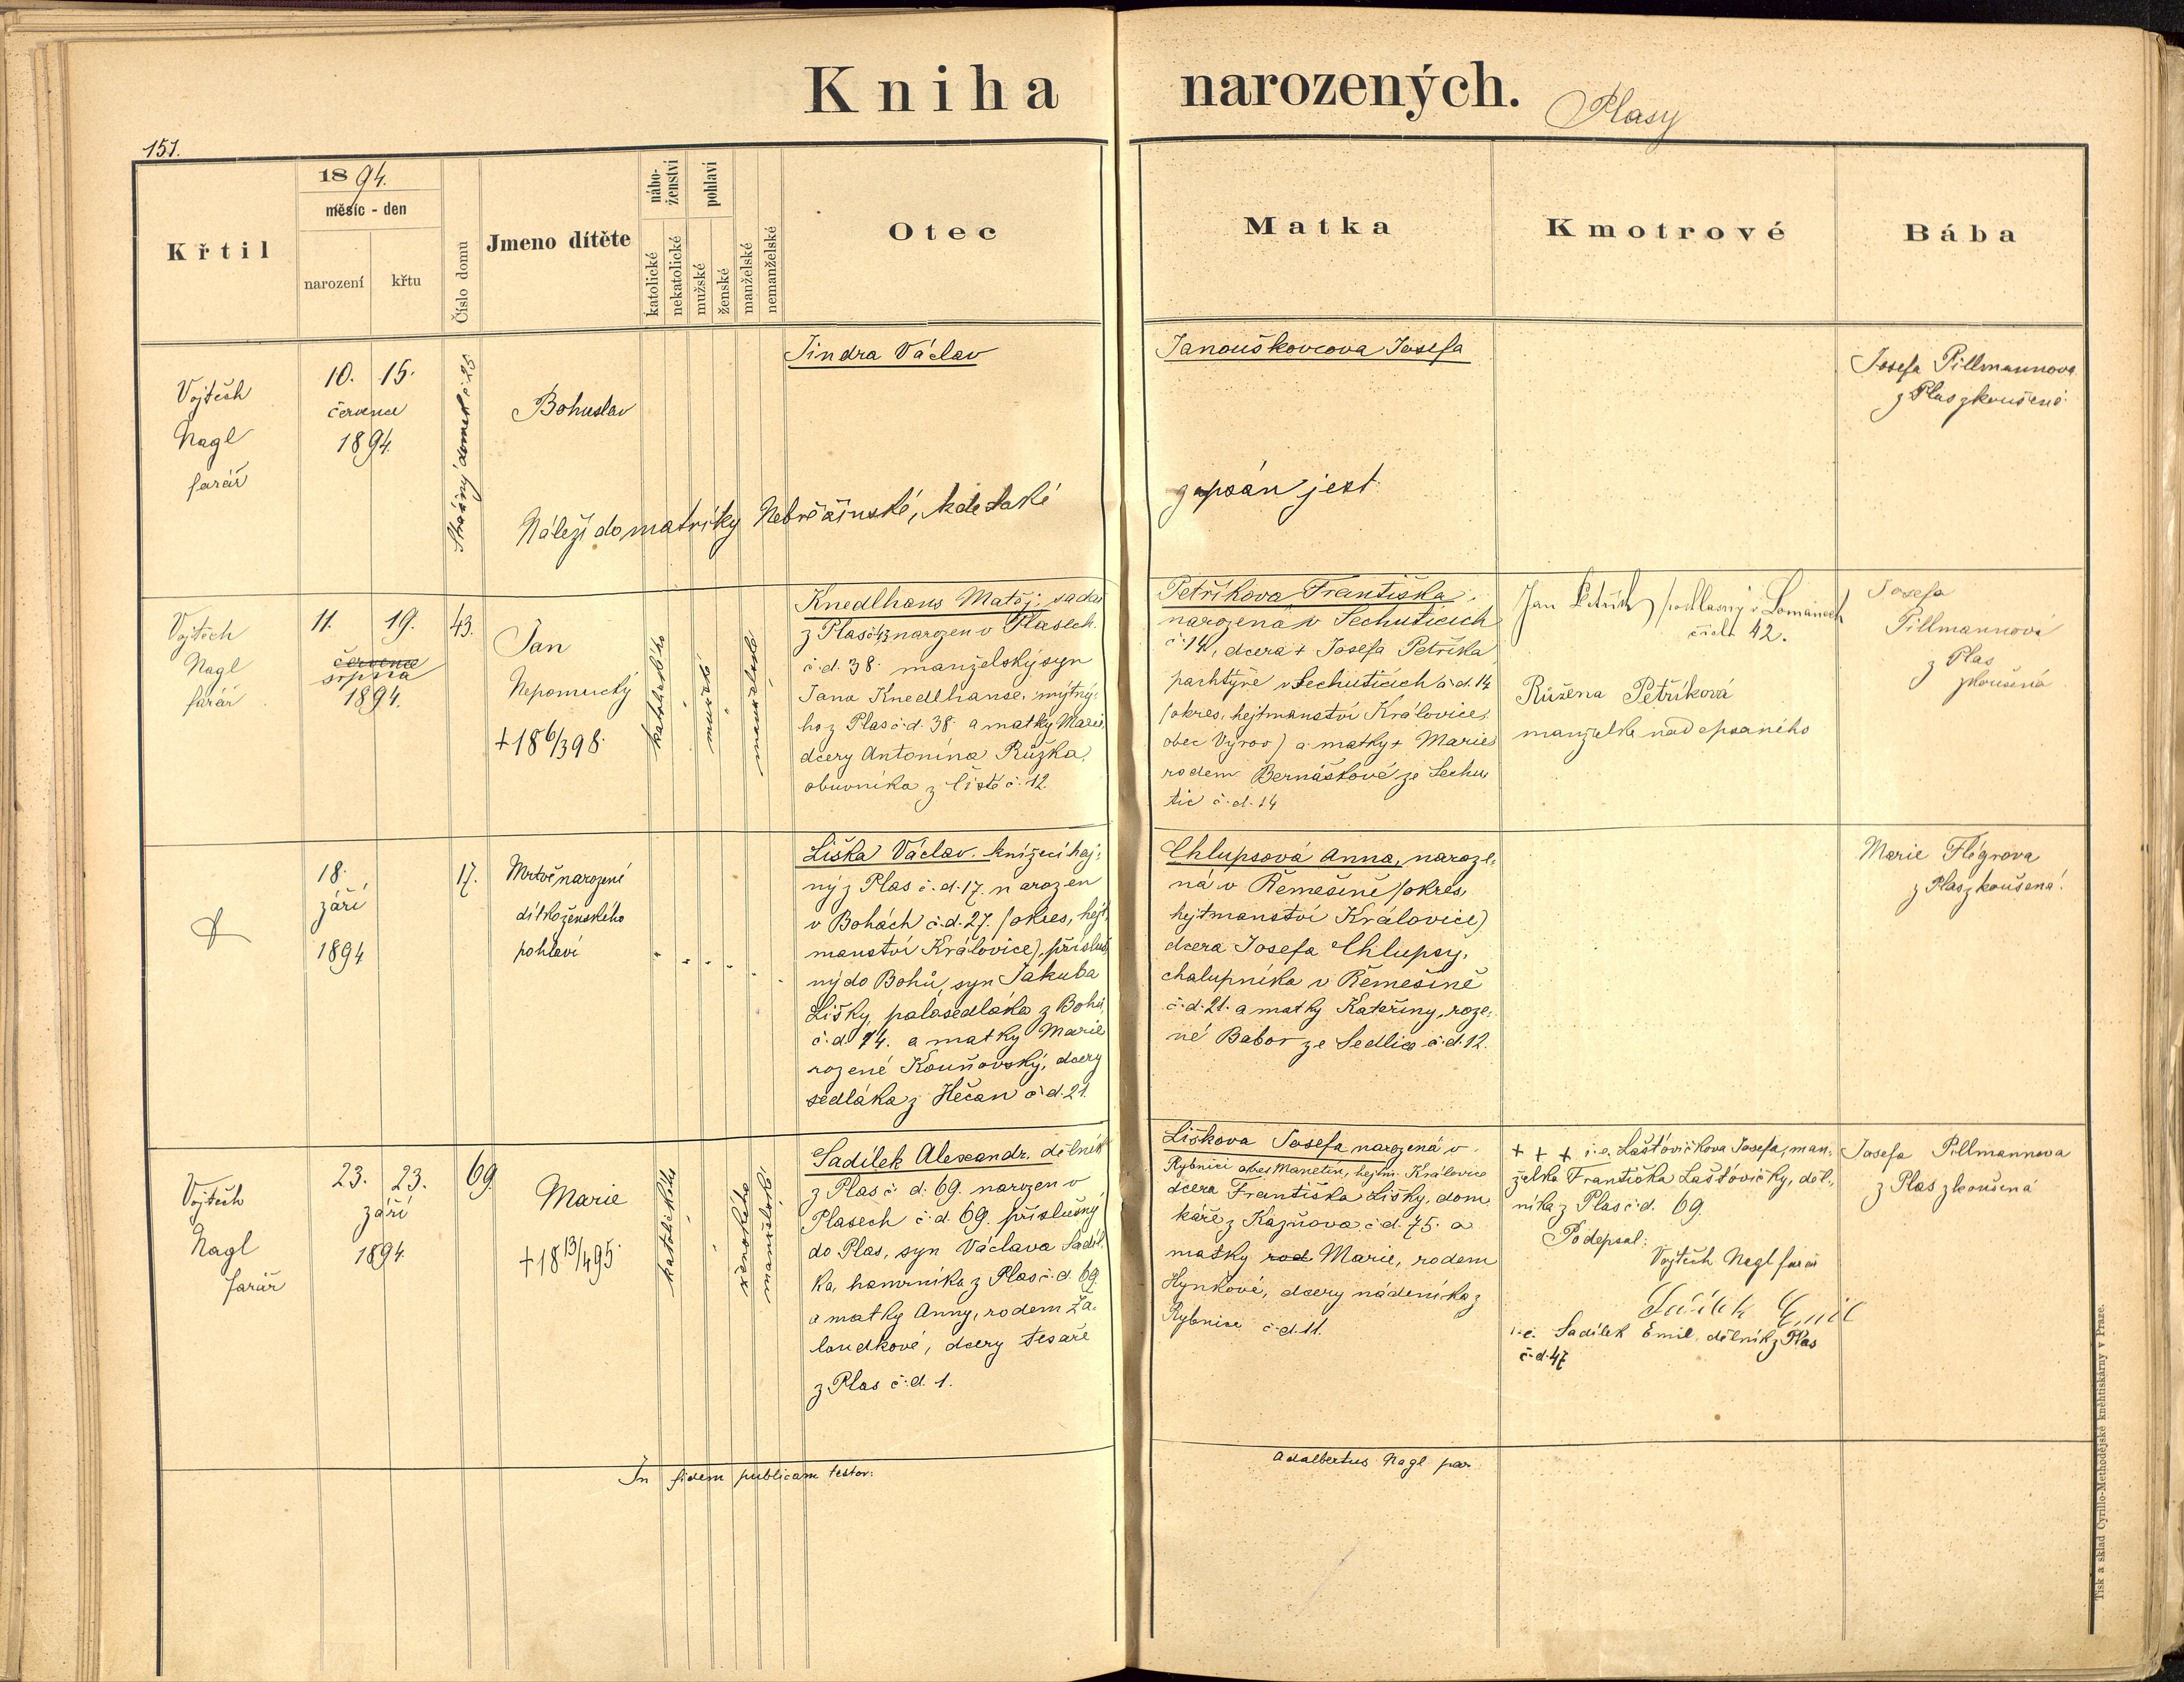 Kniha narozených.
Plasy
151.
Křtil
1894.
měsíc - den
narození
křtu
Číslo domu
Jmeno dítěte
nábo-
ženství
katolické
nekatolické
pohlaví
mužské
ženské
manželské
nemanželské
Otec
Matka
Kmotrové
Bába
Vojtěch
Nagl
farář
10. 15.
července
1894.
Strážný domek č. 25
Bohuslav
Jindra Václav
Janouškovcova Josefa
Josefa Pillmannova
z Plas zkoušená
Náleží do matriky Nebřežinské, kde také
zapsán jest
Vojtěch
Nagl
farář
11. 19.
července
srpna
1894.
43.
Jan
Nepomucký
+ 18 6/3 98.
katolického
mužské
manželské
Knedlhans Matěj, sada
z Plas č 43 narozen v Plasech
č. d. 38. manželský syn
Jana Knedlhanse, mýtný-
ho z Plas č. d. 38. a matky Marie,
dcery Antonína Růžka,
obuvníka z Čisté č. 12.
Petříkova Františka,
narozená v Sechuticích
č 14, dcera + Josefa Petříka
pachtýře v Sechuticích č. d. 14
(okres. hejtmanství Kralovice,
obec Výrov) a matky + Marie
rodem Bernáškové ze Sechu
tic č. d. 14
Jan Petřík
číslo 42.
Růžena Petříková
manželka nadepsaného
Josefa
Pillmannová
z Plas
zkoušená
18.
září
1894
17.
Mrtvě narozené
dítko ženského
pohlaví
Liška Václav. knížecí haj-
ný z Plas č. d. 17. narozen
v Bohách č. d. 27. (okres, hejt-
manství Kralovice), přísluš
ný do Bohů, syn Jakuba
Lišky, polosedláka z Bohů,
č. d. 14. a matky Marie
rozené Kouňovský, dcery
sedláka z Hečan č. d. 21.
Chlupsová Anna, naroze-
ná v Řemešíně (okres,
hejtmanství Kralovice)
dcera Josefa Chlupsy,
chalupníka v Řemešíně
č. d. 21. a matky Kateřiny, roze-
né Babor ze Sedlice č. d. 12.
Marie Flégrova
z Plas zkoušená.
Vojtěch
Nagl
farář
23. 23.
září
1894.
69.
Marie
+ 18 13/4 95.
katolického
ženského
manželské
Sadílek Alexandr. dělník
z Plas č. d. 69. narozen v
Plasech č. d. 69. příslušný
do Plas, syn Václava Sadíl-
ka, hamrníka z Plas č. d. 69
a matky Anny, rodem Ža-
loudkové, dcery tesaře
z Plas č. d. 1.
Liškova Josefa narozená v
Rybnici okres Manetín, hejtm. Kralovice
dcera Františka Lišky, dom
káře z Kaznova č. d. 75. a
matky rod Marie, rodem
Hynkové, dcery nádeníka z
Rybnice č. d. 11.
+ + + i. e. Laštovičkova Josefa, man-
želka Františka Laštovičky, děl-
níka z Plas č. d. 69.
Podepsal:
Vojtěch Nagl farář
Sadílek Emil
i. e. Sadílek Emil, dělník z Plas
č. d. 47
Josefa Pillmannova
z Plas zkoušená
In fidem publicam testor:
Adalbertus Nagl par.
Tisk a sklad Cyrillo-Methodějské knihtiskárny v Praze.